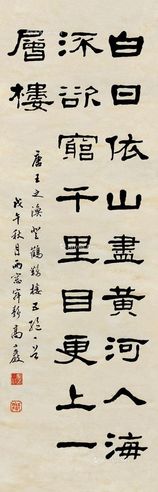 白日依山盡黃河入海
流欲窮千里目更上一
層樓
唐王之渙登鸛鵲樓五絕一首
戊午秋月雨窗